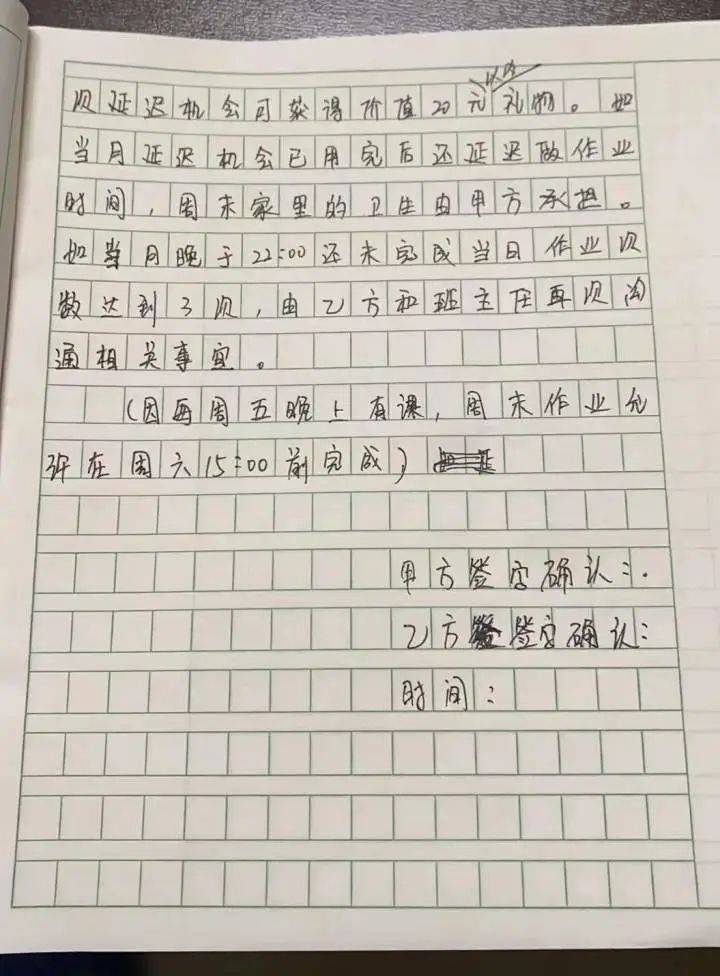 次延迟机会可获得价值20元以内礼物。如
当月延迟机会已用完后还延迟做作业
时间，周末家里的卫生由甲方承担。
如当月晚于22:00还未完成当日作业次
数达到3次，由乙方和班主任再次沟
通相关事宜。
（因每周五晚上有课，周末作业允
许在周六15:00前完成）
甲方签字确认：
乙方签字确认：
时间：